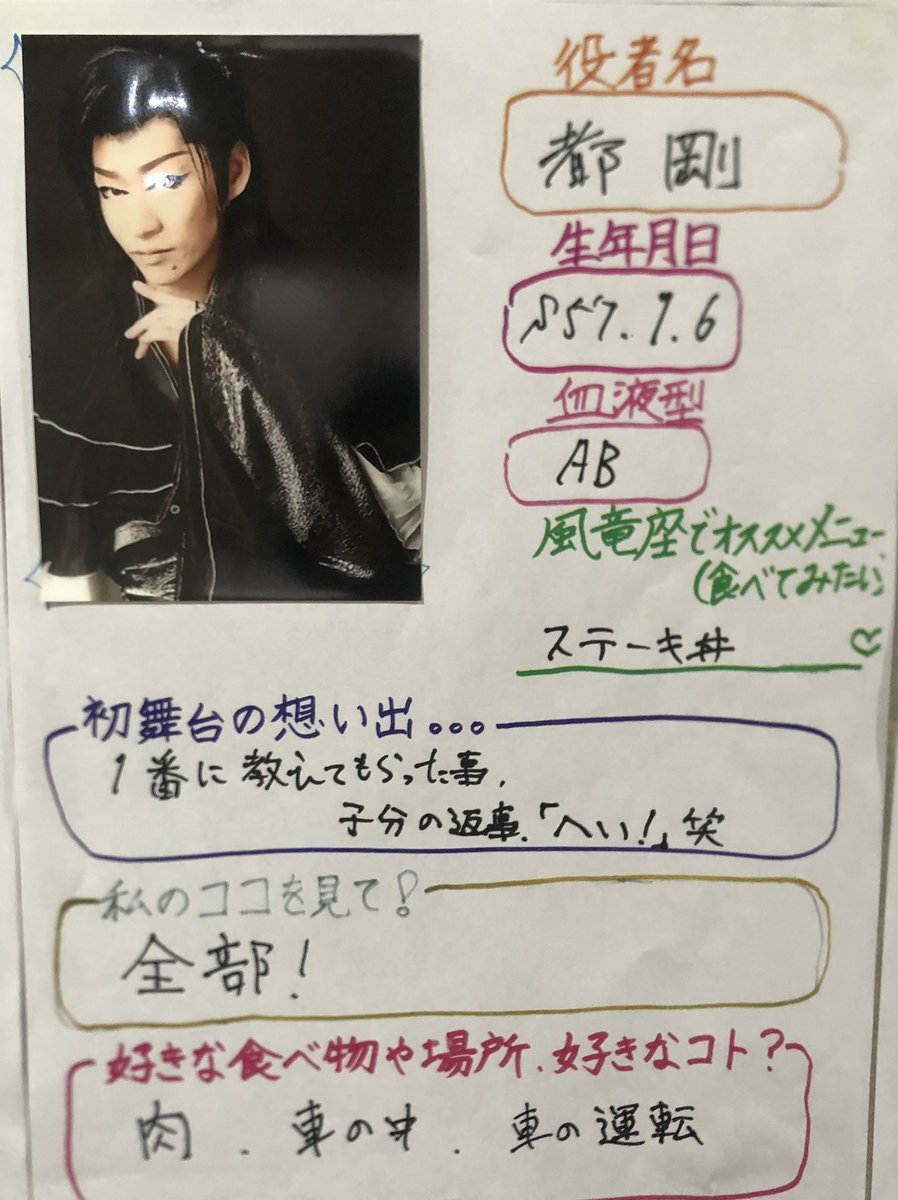 役者名
都 剛
生年月日
S57.9.6
血液型
AB
風竜座でオススメメニュー
(食べてみたい)
ステーキ丼
初舞台の想い出...
1番に教えてもらった事、
子分の返事、「へい!」笑
私のココを見て!
全部!
好きな食べ物や場所、好きなコト?
肉 . 車の中 . 車の運転